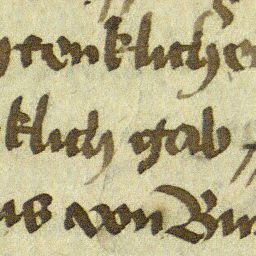 renklicher
klich gab
us von Bu